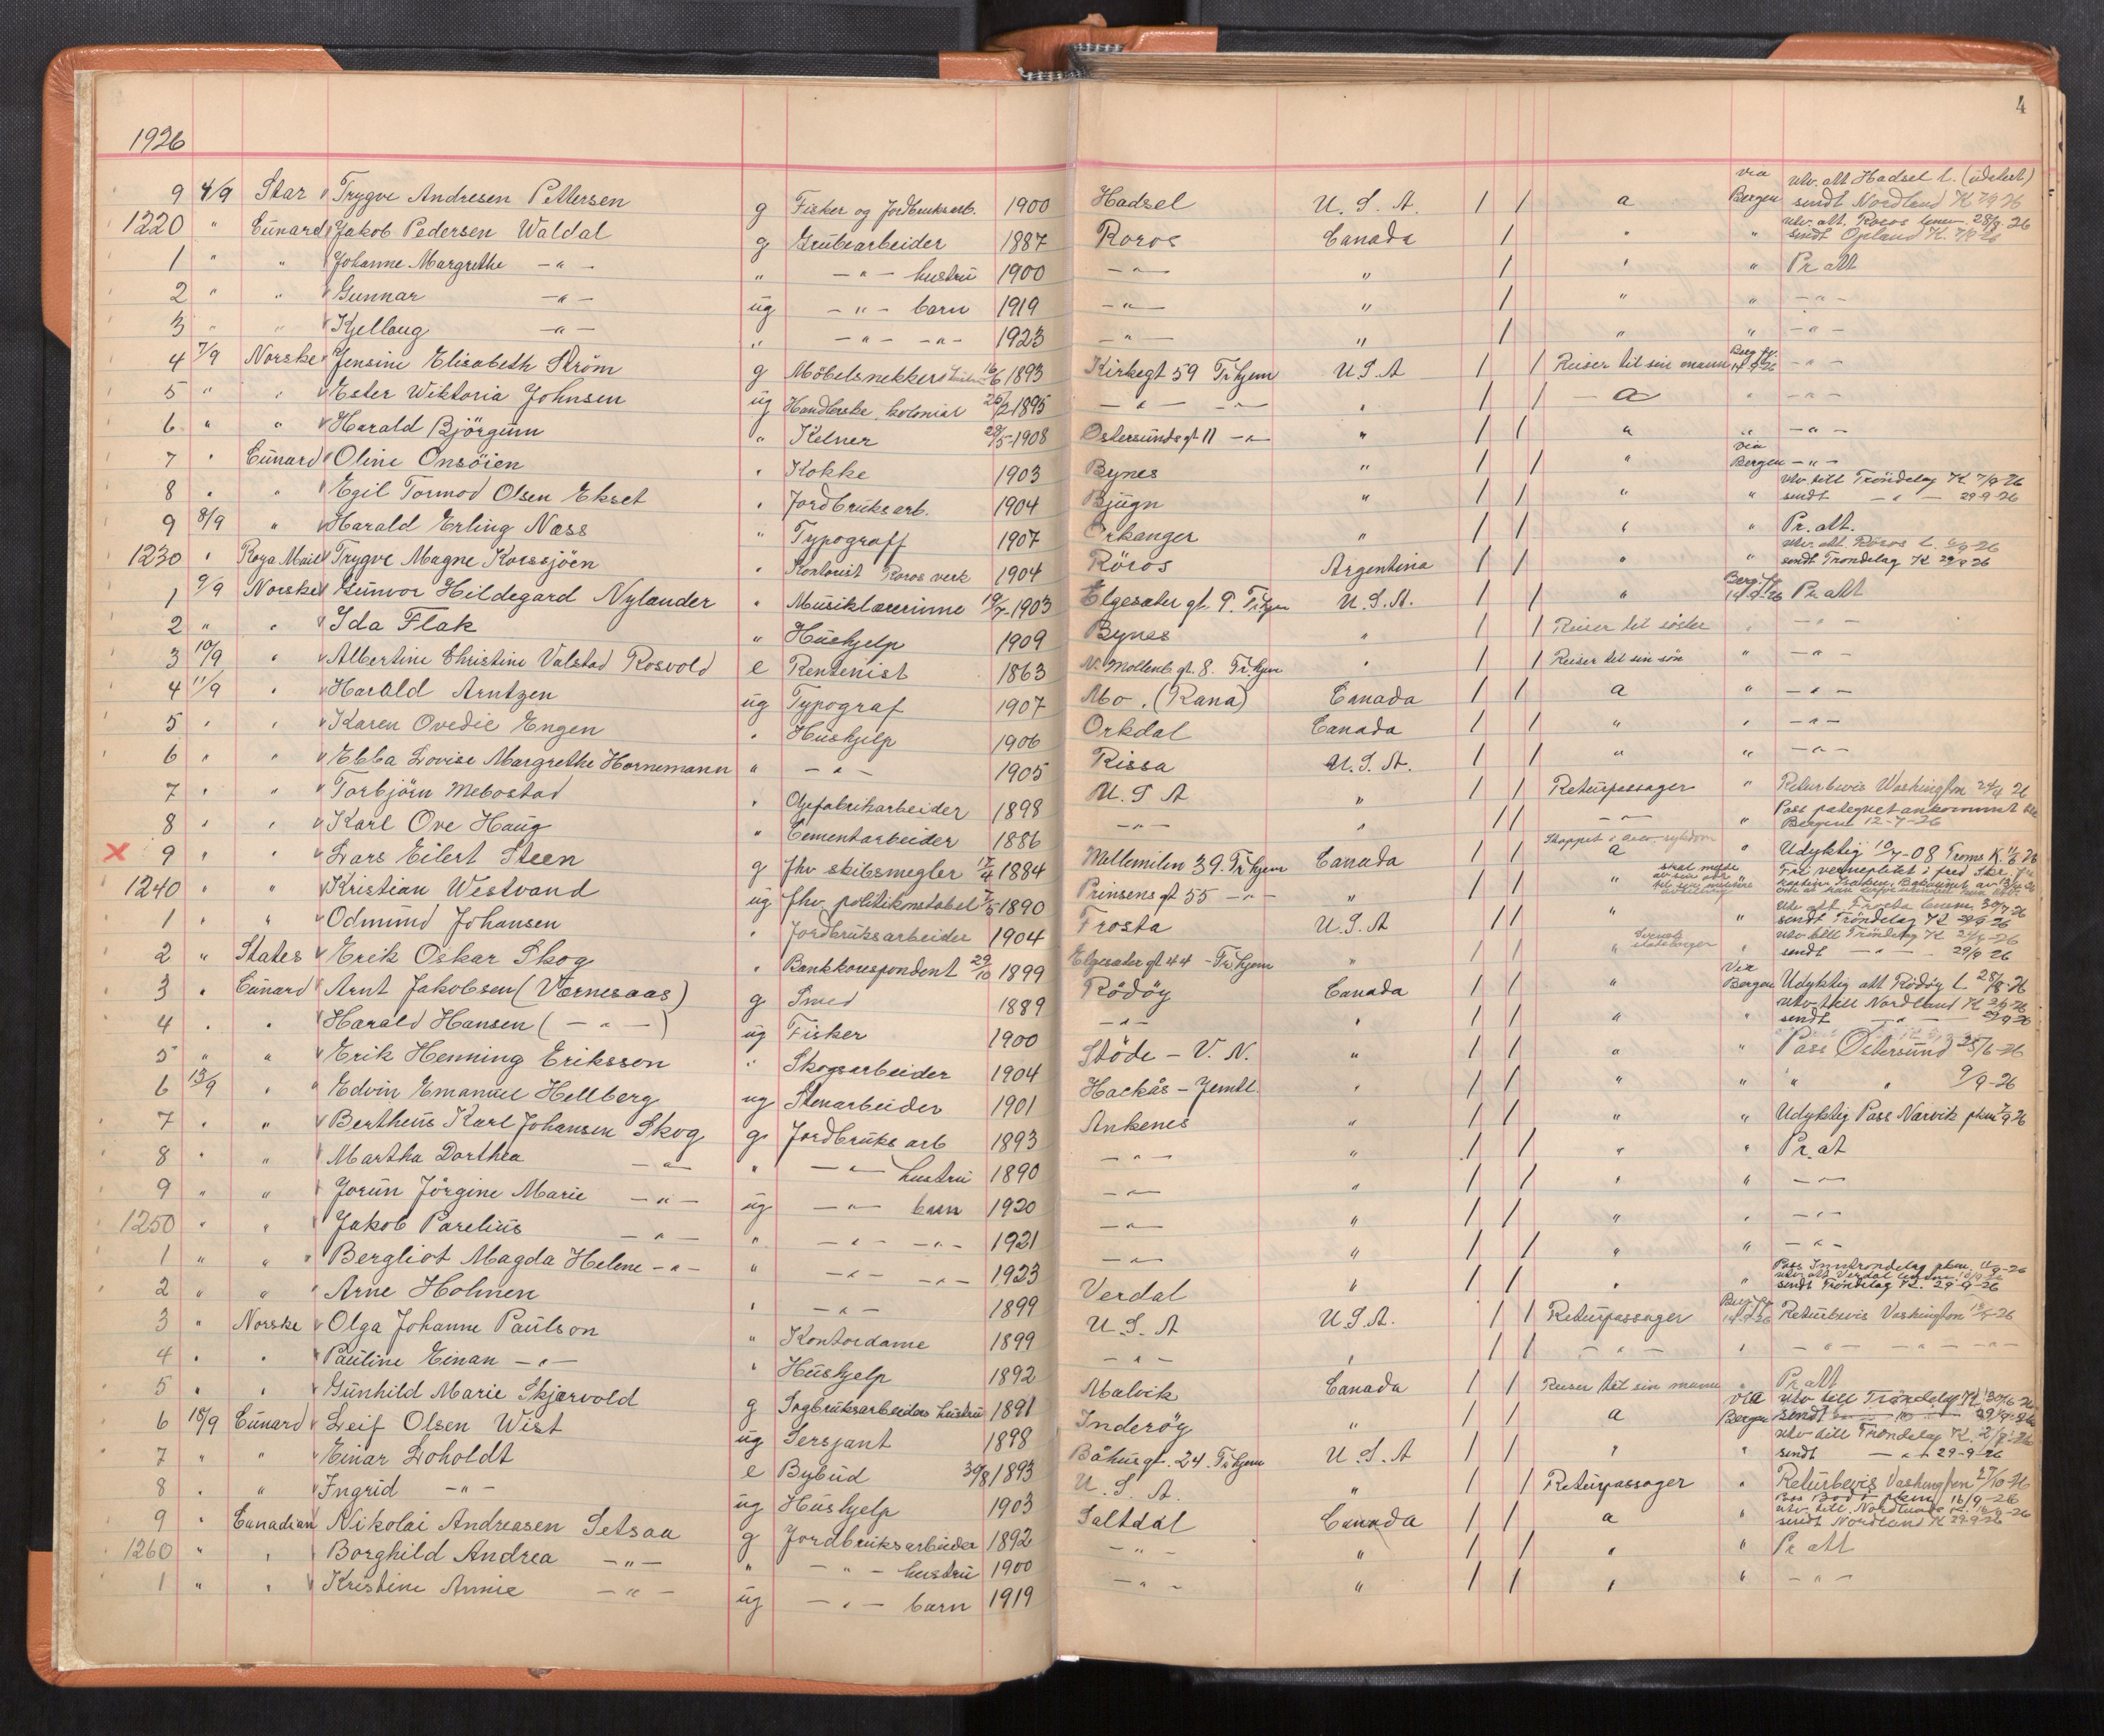 4
1926
9 4/9 Star Trygve Andresen Pettersen g Fisker og Jordbruksarb. 1900 Hadsel U. S. A. / / a via Bergen utv. att Hadsel l. (udatert) sendt Nordland K 7/9 26
1220 " Cunard Jakob Pedersen Waldal g Grubearbeider 1887 Roros Canada / " " utv. att. Roros 28/8. 26 sendt Opland K. 7/9 26
1 " " Johanne Margrethe - " - " - " - hustru 1900 - " - " / " " Pr att
2 " " Gunnar - " - ug - " - barn 1919 - " - " / " " - " -
3 " " Kjellaug - " - " - " - - " - 1923 - " - " / " " - " -
4 7/9 Norske Jensine Elisabeth Ström g Möbelsnekkers hustru 16/6 1893 Kirkegt 59 Tr hjem U S A / / Reiser til sin mann Berg. fj. 14-9-26 - " -
5 " " Ester Wiktoria Johnsen ug Handlerske kolonial 26/2 1895 - " - - " - " / / - a - " - " -
6 " " Harald Björgum " Kelner 29/5-1908 Ostersundsgt 11 - " - " / / " " - " -
7 " Cunard Oline Onsöien " Kokke 1903 Bynes " / / " via Bergen - " -
8 " " Egil Tormod Olsen Ekset " Jordbruksarb. 1904 Bjugn " / / " " utv. till Tröndelag K 7/9-26 sendt - " - 29-9-26
9 8/9 " Harald Erling Næss " Typograff 1907 Orkanger " / / " " Pr. att.
1230 " Roya Mail Trygve Magne Korssjöen " Kontorist Roros verk 1904 Röros Argentina / / " " utv. att. Röros l. 6/9-26 sendt Trondelag K 29/9 26
1 9/9 Norske Gunvor Hildegard Nylander " Musiklærerinne 19/7-1903 Elgesæter gt. 9. Tr hjem U. S. A. / / " Berg. fj. 14-9-26 Pr. att
2 " " Ida Flak " Hushjelp 1909 Bynes " / / Reiser til söster " - " -
3 10/9 " Albertine Christine Valstad Rosvold e Rentenist 1863 N. Mollenb. gt. 8. Tr. hjem " / / Reiser til sin sön " - " -
4 11/9 " Harald Arntzen ug Typograf 1907 Mo. (Rana) Canada / / a " - " -
5 " " Karen Ovedie Engen " Hushjelp 1906 Orkdal Canada / / " " - " -
6 " " Ebba Lovise Margrethe Hornemann " - " - 1905 Rissa U. S. A. / / " " - " -
7 " " Torbjörn Mebostad " Oljefabrikarbeider 1898 U. S A " / / Returpassager " Returbevis Washington 24/4 26
8 " " Karl Ove Haug " Cementarbeider 1886 - " - " / / - " - " Pass pategnet ankommst Bergen 12-7-26
× 9 " " Lars Eilert Steen g fhv skibsmegler 17/4 1884 Mellemilen 39. Tr hjem Canada / / a " Udyktig 10/7-08 Troms K. 11/6 26
1240 " " Kristian Westvand ug fhv politikonstabel 7/5 1890 Prinsens gt 55 - " - " / / " "
1 " " Odmund Johansen " Jordbruksarbeider 1904 Frosta U. S. A / / " " utv. att. Frosta 30/7 26 sendt Tröndelag K 29/9-26
2 " States Erik Oskar Skog " Bankkorespondent 29/10 1899 Elgesæter gt 44 - Tr hjem " / / " Svensk statsborger " utv till Tröndelag K 24/9-26 sendt - " - 29/9 26
3 " Cunard Arnt Jakobsen (Værnesaas) g Smed 1889 Rödöy Canada / / " Via Bergen Udyktig att Rödöy l. 28/8-26
4 " " Harald Hansen ( - " - ) ug Fisker 1900 - " - " / / " " utv. till Nordland K 2/9 26 sendt - " - 29/9-26
5 " " Erik Henning Eriksson " Skogsarbeider 1904 Stöde - V. N. " / / " " Pass Östersund 25/6-26
6 13/9 " Edvin Emanuel Hellberg ug Stenarbeider 1901 Hackås - Jemtl. " / / " " " " 9/9-26
7 " " Bertheus Karl Johansen Skog g Jordbruks arb 1893 Ankenes " / / " " Udyktig Pass Narvik 7/9 26
8 " " Martha Dorthea - " - " - " - hustru 1890 - " - " / / " " Pr. at
9 " " Jorun Jörgine Marie - " - ug - " - barn 1920 - " - " / / " " - " -
1250 " " Jakob Parelius - " - " - " - - " - 1921 - " - " / / " " - " -
1 " " Bergliot Magda Helene - " - " - " - - " - 1923 - " - " / / " " - " -
2 " " Arne Holmen " - " - 1899 Verdal " / / " " sendt Tröndelag K. 29-9-26
3 " Norske Olga Johanne Paulson " Kontordame 1899 U. S. A U. S. A. / / Returpassager Berg. fj. 14-9-26 Returbevis Vashington 13/5-26
4 " " Pauline Einan - " - " Hushjelp 1892 - " - " / / - " - " - " - - " - - " -
5 " " Gunhild Marie Skjærvold g Sagbruksarbeiders hustru 1891 Malvik Canada / / Reiser til sin mann " Pr. att
6 18/9 Cunard Leif Olsen Wist ug Sersjant 1898 Inderöy " / / a via Bergen utv. till Tröndelag K 30/6 26 sendt - " - 29/9-26
7 " " Einar Loholdt e Bybud 30/8 1893 Båhusgt. 24. Tr hjem U S. A / / " " utv till Tröndelag K. 2/9-26 sendt - " - 29-9-26
8 " " Ingrid - " - ug Hushjelp 1903 U. S. A. " / / Returpassager " Returbevis Vashington 27/10-26
9 " Canadian Nikolai Andreasen Setsaa g Jordbruksarbeider 1892 Saltdal Canada / / a " Pass Bodö 16/9-26 utv. till Nordland sendt Nordland K 29-9-26
1260 " " Borghild Andrea - " - " - " - hustru 1900 - " - " / / " " Pr att
1 " " Kristine Annie - " - ug - " - barn 1919 - " - " / / " " - " -